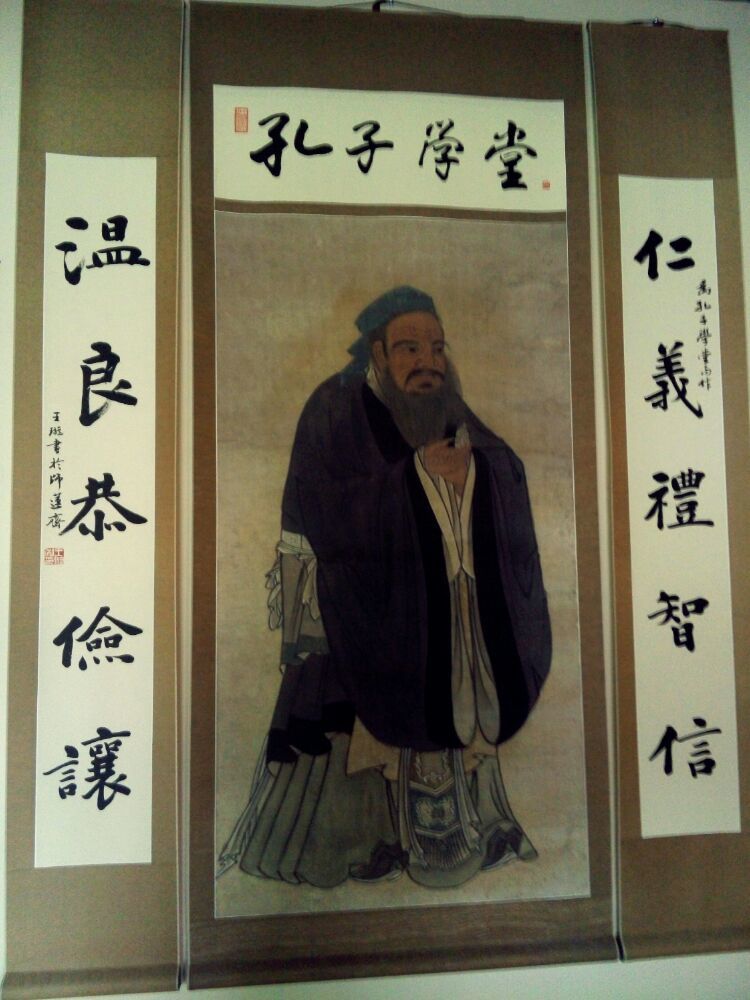 孔子学堂
仁義禮智信
為孔子學堂而作
温良恭儉讓
書於師蓮齋